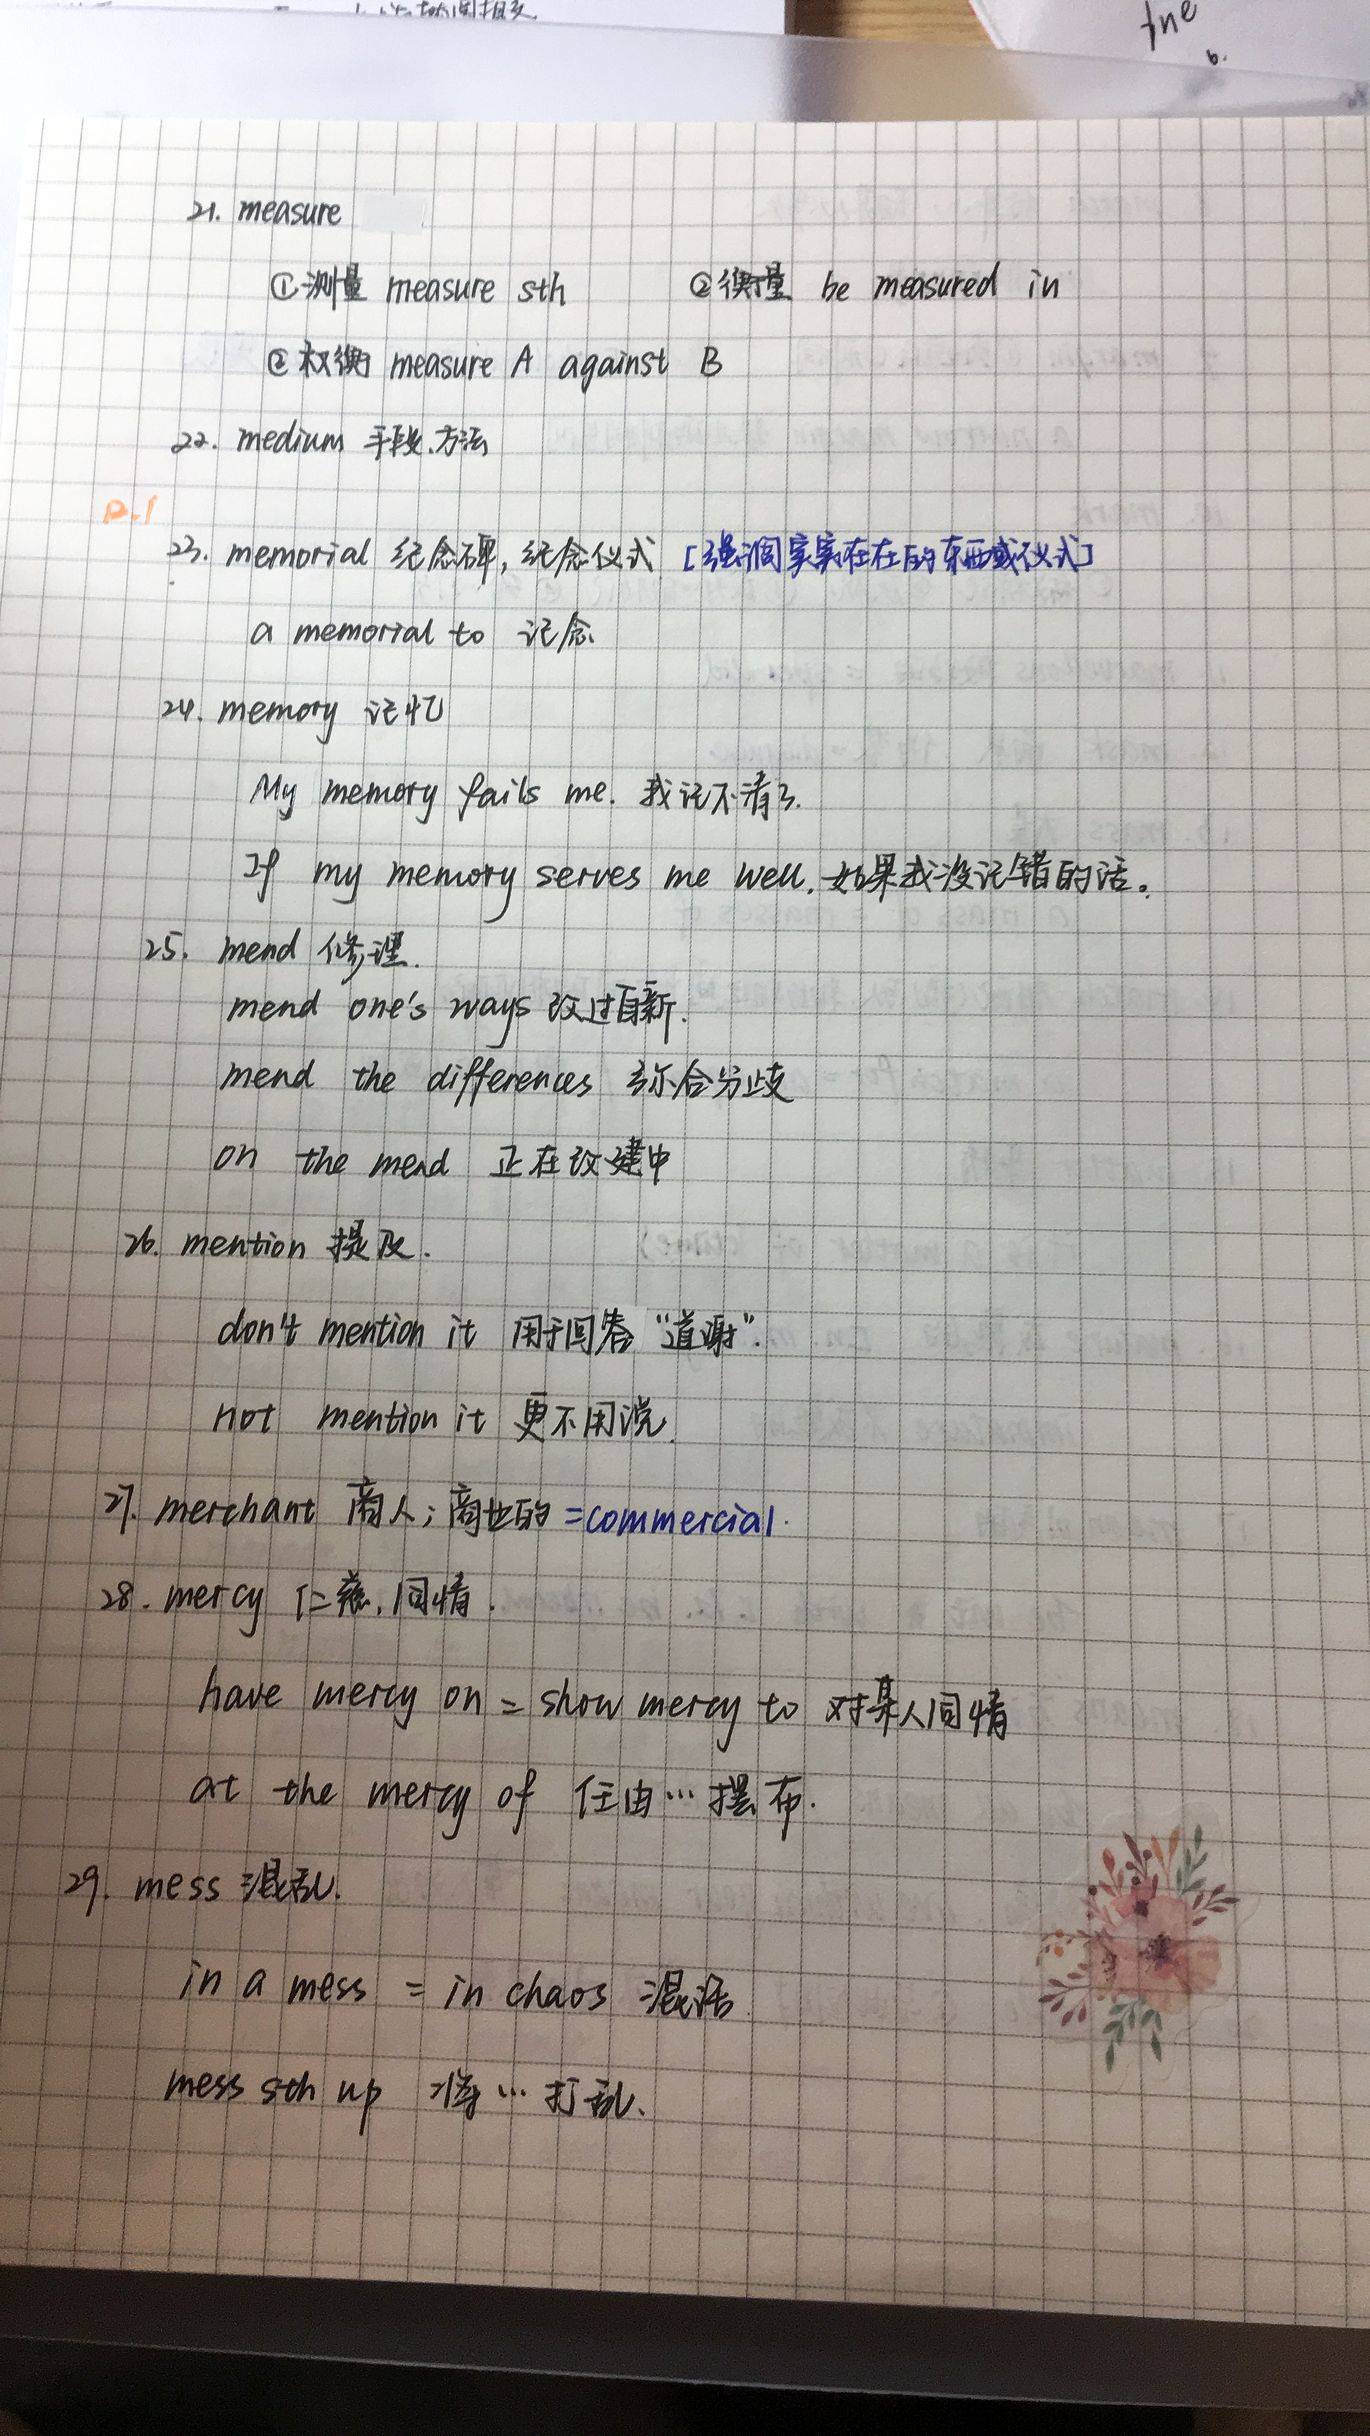 the
b.
21. measure
①测量 measure sth ②衡量 be measured in
② 权衡 measure A against B
22. medium 手段、方法
P.1
23. memorial 纪念碑, 纪念仪式 [强调实实在在的东西或仪式]
a memorial to 记念
24. memory 记忆
My memory fails me. 我记不清了.
If my memory serves me well, 如果我没记错的话。
25. mend 修理.
mend one's ways 改过自新.
mend the differences 弥合分歧
on the mend 正在改建中
26. mention 提及.
don't mention it 用于回答 “道谢”.
not mention it 更不用说.
27. merchant 商人; 商业的 =commercial.
28. mercy 仁慈, 同情.
have mercy on = show mercy to 对某人同情
at the mercy of 任由…摆布.
29. mess 混乱.
in a mess = in chaos 混活
mess sth up 将…打乱.